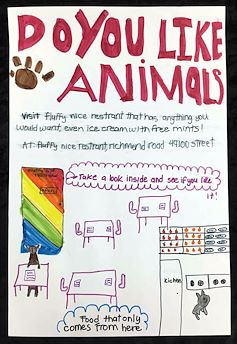 DO YOU LIKE
ANIMALS
Visit fluffy nice restrant that has, anything you
would want, even ice cream with free mints!
At fluffy nice restrant, richmond road 49100 street
Take a look inside and see if you like
it!
kichen
Food that only
comes from here